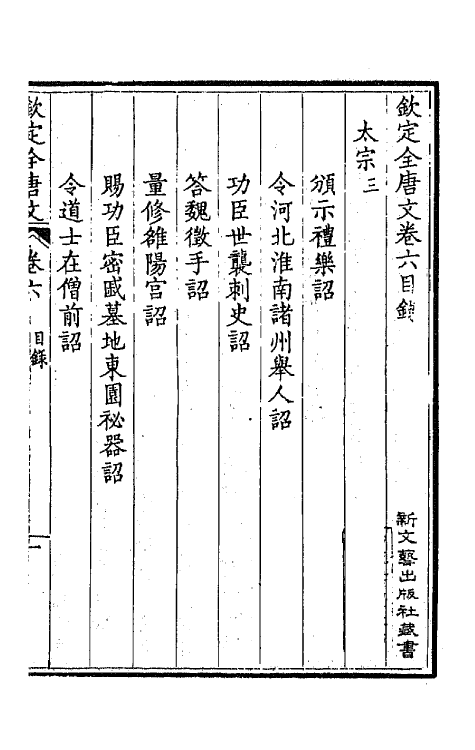 欽定全唐文卷六目錄
新文藝出版社藏書
太宗三
頒示禮樂詔
令河北淮南諸州舉人詔
功臣世襲刺史詔
答魏徵手詔
量修雒陽宮詔
賜功臣密戚墓地東園祕器詔
令道士在僧前詔
欽定全唐文 卷六 目錄 一